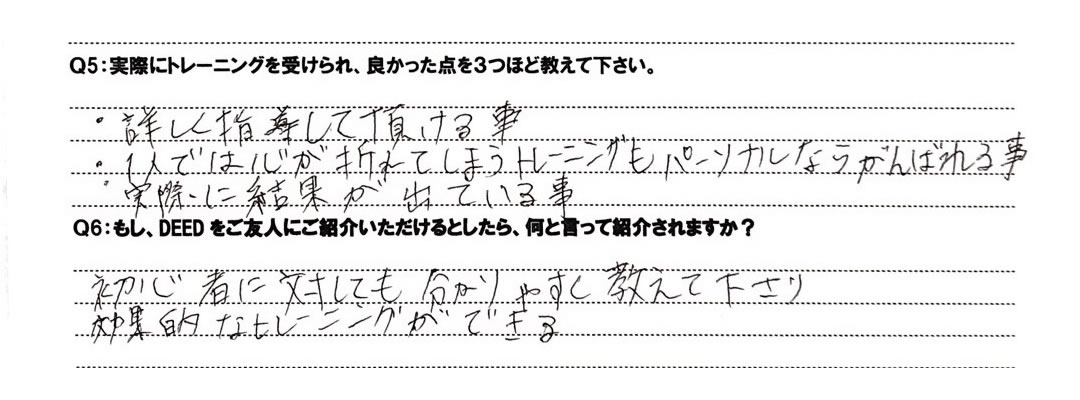 Q5：実際にトレーニングを受けられ、良かった点を3つほど教えて下さい。
・詳しく指導して頂ける事
・1人では心が折れてしまうトレーニングもパーソナルならがんばれる事
・実際に結果が出ている事
Q6：もし、DEEDをご友人にご紹介いただけるとしたら、何と言って紹介されますか？
初心者に対しても分かりやすく教えて下さり
効果的なトレーニングができる